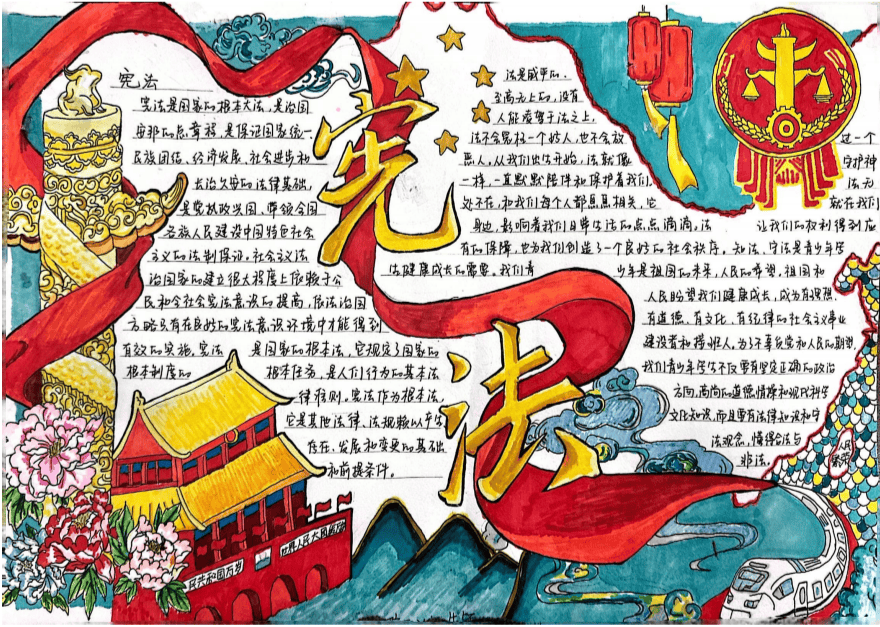 宪法
宪法
宪法是国家的根本大法,是治国
安邦的总章程,是保证国家统一、
民族团结、经济发展、社会进步和
长治久安的法律基础,
是党执政兴国、带领全国
各族人民建设中国特色社会
主义的法制保证。社会主义法
治国家的建立很大程度上依赖于公
民和全社会宪法意识的提高,依法治国
方略只有在良好的宪法意识环境中才能得到
有效的实施。宪法 是国家的根本法,它规定了国家的
根本制度的 根本任务,是人们行为的基本法
律准则。宪法作为根本法,
它是其他法律、法规赖以产生
存在、发展和变更的基础
和前提条件。
法是威严的、
至高无上的,没有
人能凌驾于法之上,
法不会冤枉一个好人,也不会放 过一个
恶人,从我们出生开始,法就像 守护神
一样,一直默默陪伴和保护着我们, 法无
处不在,和我们每个人都息息相关,它 就在我们
身边,影响着我们日常生活的点点滴滴,法 让我们的权利得到应
有的保障,也为我们创造了一个良好的社会秩序。知法、守法是青少年学
法健康成长的需要,我们青 少年是祖国的未来,人民的希望,祖国和
人民盼望我们健康成长,成为有理想、
有道德、有文化、有纪律的社会主义事业
建设者和接班人,为了不辜负党和人民的期望,
我们青少年学生不仅要有坚定正确的政治
方向,高尚的道德情操和现代科学
文化知识,而且要有法律知识和守
法观念,懂得合法与
非法。
人民
繁荣
民共和国万岁
世界人民大团结万